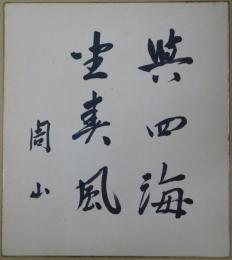 與四海
坐春風
周山